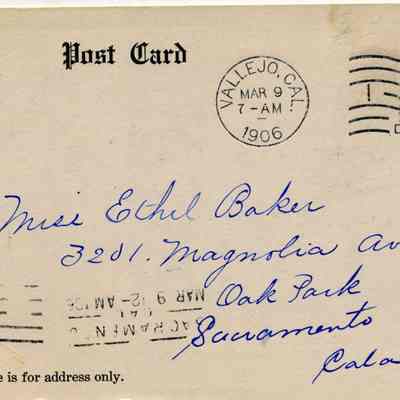 Post Card
VALLEJO, CAL.
MAR 9
7-AM
1906
Miss Ethel Baker
3201. Magnolia Av
Oak Park
Sacramento
Cala
SACRAMEN
CAL
MAR 9 12-AM '06
e is for address only.